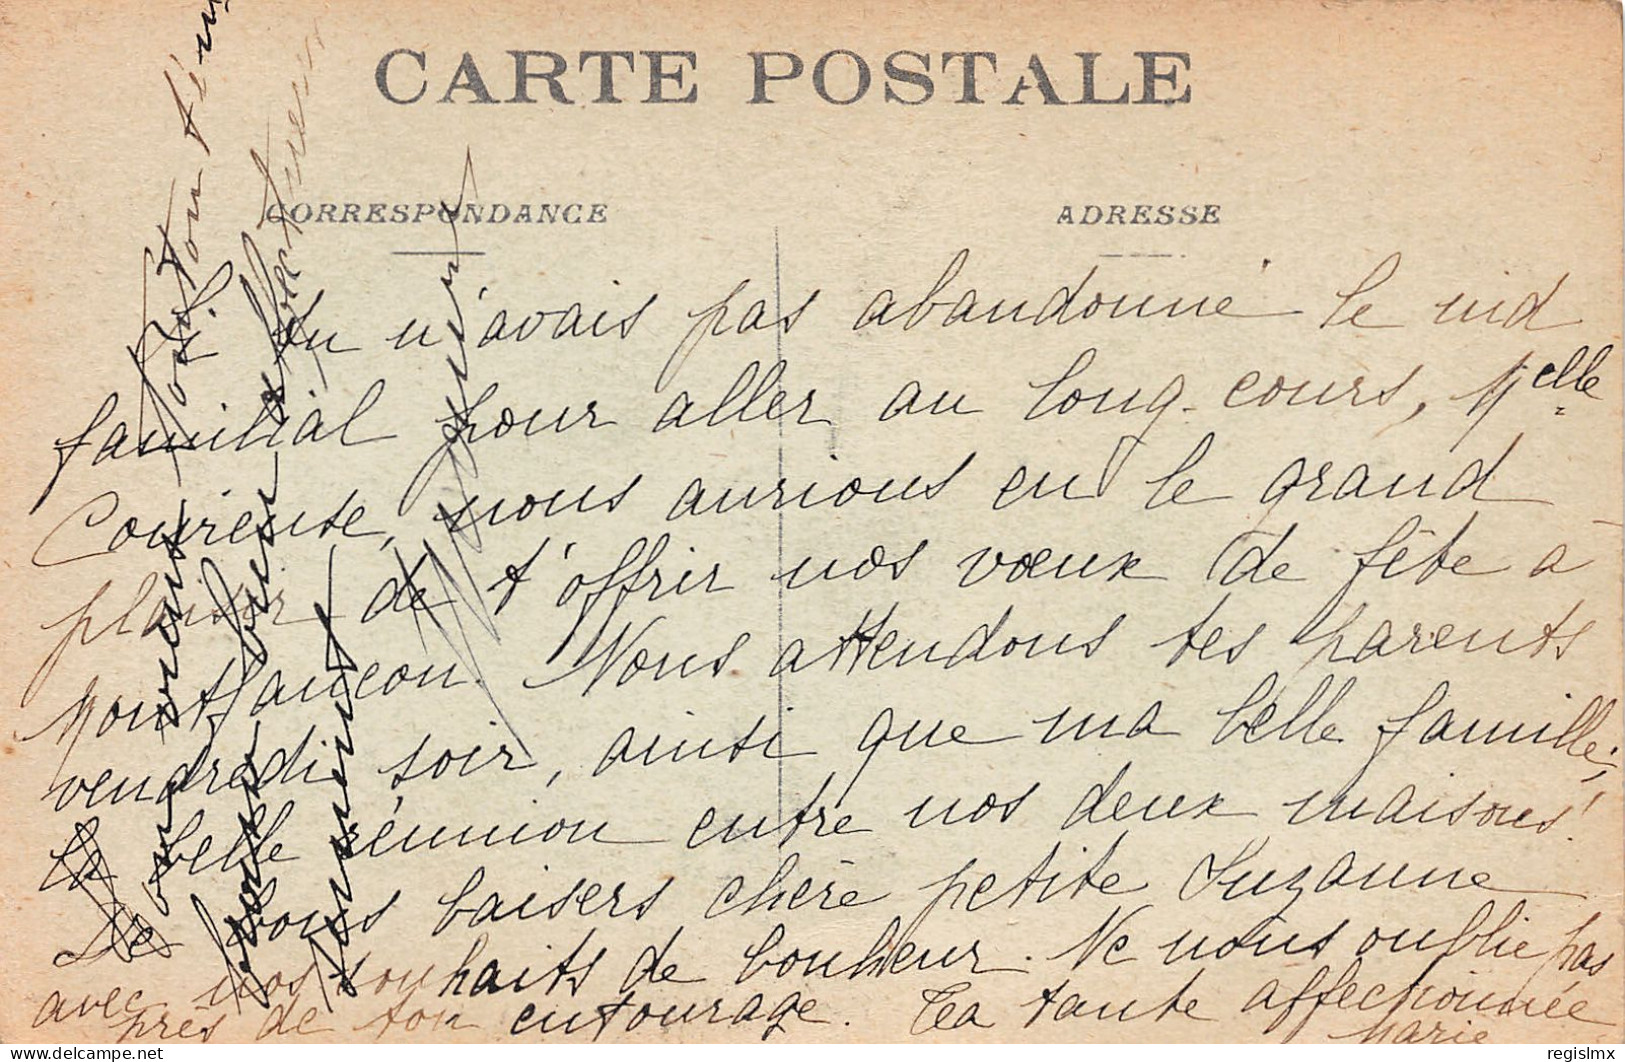 CARTE POSTALE
CORRESPONDANCE
ADRESSE
Si tu n'avais pas abandonné le nid
familial pour aller au long-cours, Melle
Coureuse, nous aurions eu le grand
plaisir de t'offrir nos vœux de fête a
Montfaucon. Nous attendons tes parents
vendredi soir, ainsi que ma belle famille;
la belle réunion entre nos deux maisons!
De bons baisers chère petite Suzanne
avec nos souhaits de bonheur. Ne nous oublie pas
près de ton entourage. Ta tante affectionnée
Marie
regislmx
delcampe.net